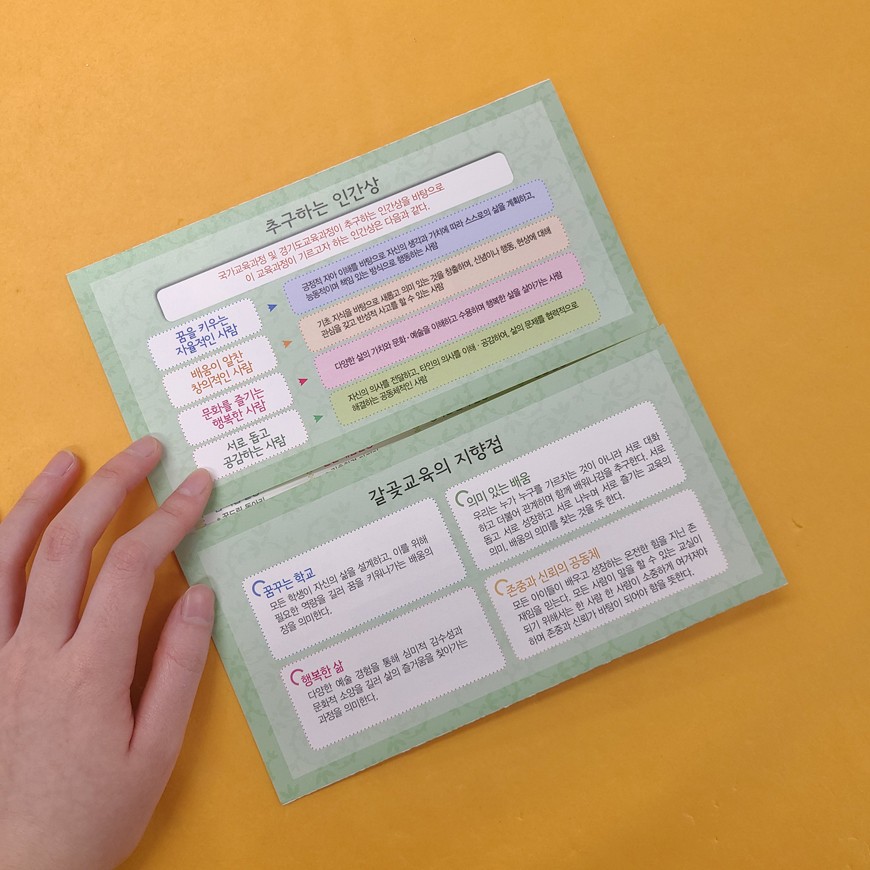 추구하는 인간상
국가교육과정 및 경기도교육과정이 추구하는 인간상을 바탕으로
이 교육과정이 기르고자 하는 인간상은 다음과 같다.
꿈을 키우는
자율적인 사람
긍정적 자아 이해를 바탕으로 자신의 생각과 가치에 따라 스스로의 삶을 계획하고,
능동적이며 책임 있는 방식으로 행동하는 사람
배움이 알찬
창의적인 사람
기초 지식을 바탕으로 새롭고 의미 있는 것을 창출하며, 신념이나 행동, 현상에 대해
관심을 갖고 반성적 사고를 할 수 있는 사람
문화를 즐기는
행복한 사람
다양한 삶의 가치와 문화·예술을 이해하고 수용하며 행복한 삶을 살아가는 사람
서로 돕고
공감하는 사람
자신의 의사를 전달하고, 타인의 의사를 이해·공감하여, 삶의 문제를 협력적으로
해결하는 공동체적인 사람
갈곶교육의 지향점
꿈꾸는 학교
모든 학생이 자신의 삶을 설계하고, 이를 위해
필요한 역량을 길러 꿈을 키워나가는 배움의
장을 의미한다.
의미 있는 배움
우리는 누가 누구를 가르치는 것이 아니라 서로 대화
하고 더불어 관계하며 함께 배워나감을 추구한다. 서로
돕고 서로 성장하고 서로 나누며 서로 즐기는 교육의
의미, 배움의 의미를 찾는 것을 뜻 한다.
행복한 삶
다양한 예술 경험을 통해 심미적 감수성과
문화적 소양을 길러 삶의 즐거움을 찾아가는
과정을 의미한다.
존중과 신뢰의 공동체
모든 아이들이 배우고 성장하는 온전한 힘을 지닌 존
재임을 믿는다. 모든 사람이 말을 할 수 있는 교실이
되기 위해서는 한 사람 한 사람이 소중하게 여겨져야
하며 존중과 신뢰가 바탕이 되어야 함을 뜻한다.